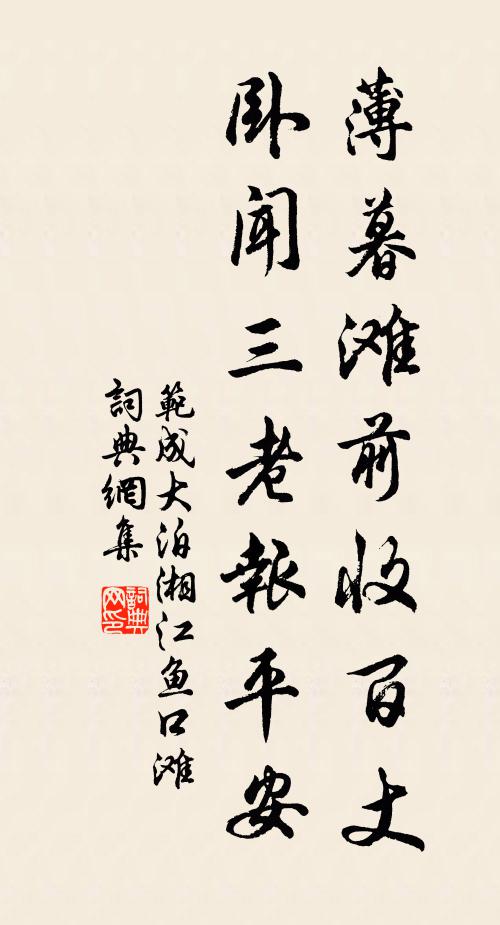 薄暮滩前收百丈
卧闻三老報平安
範成大泊湘江鱼口滩
詞典網集
詞典网印